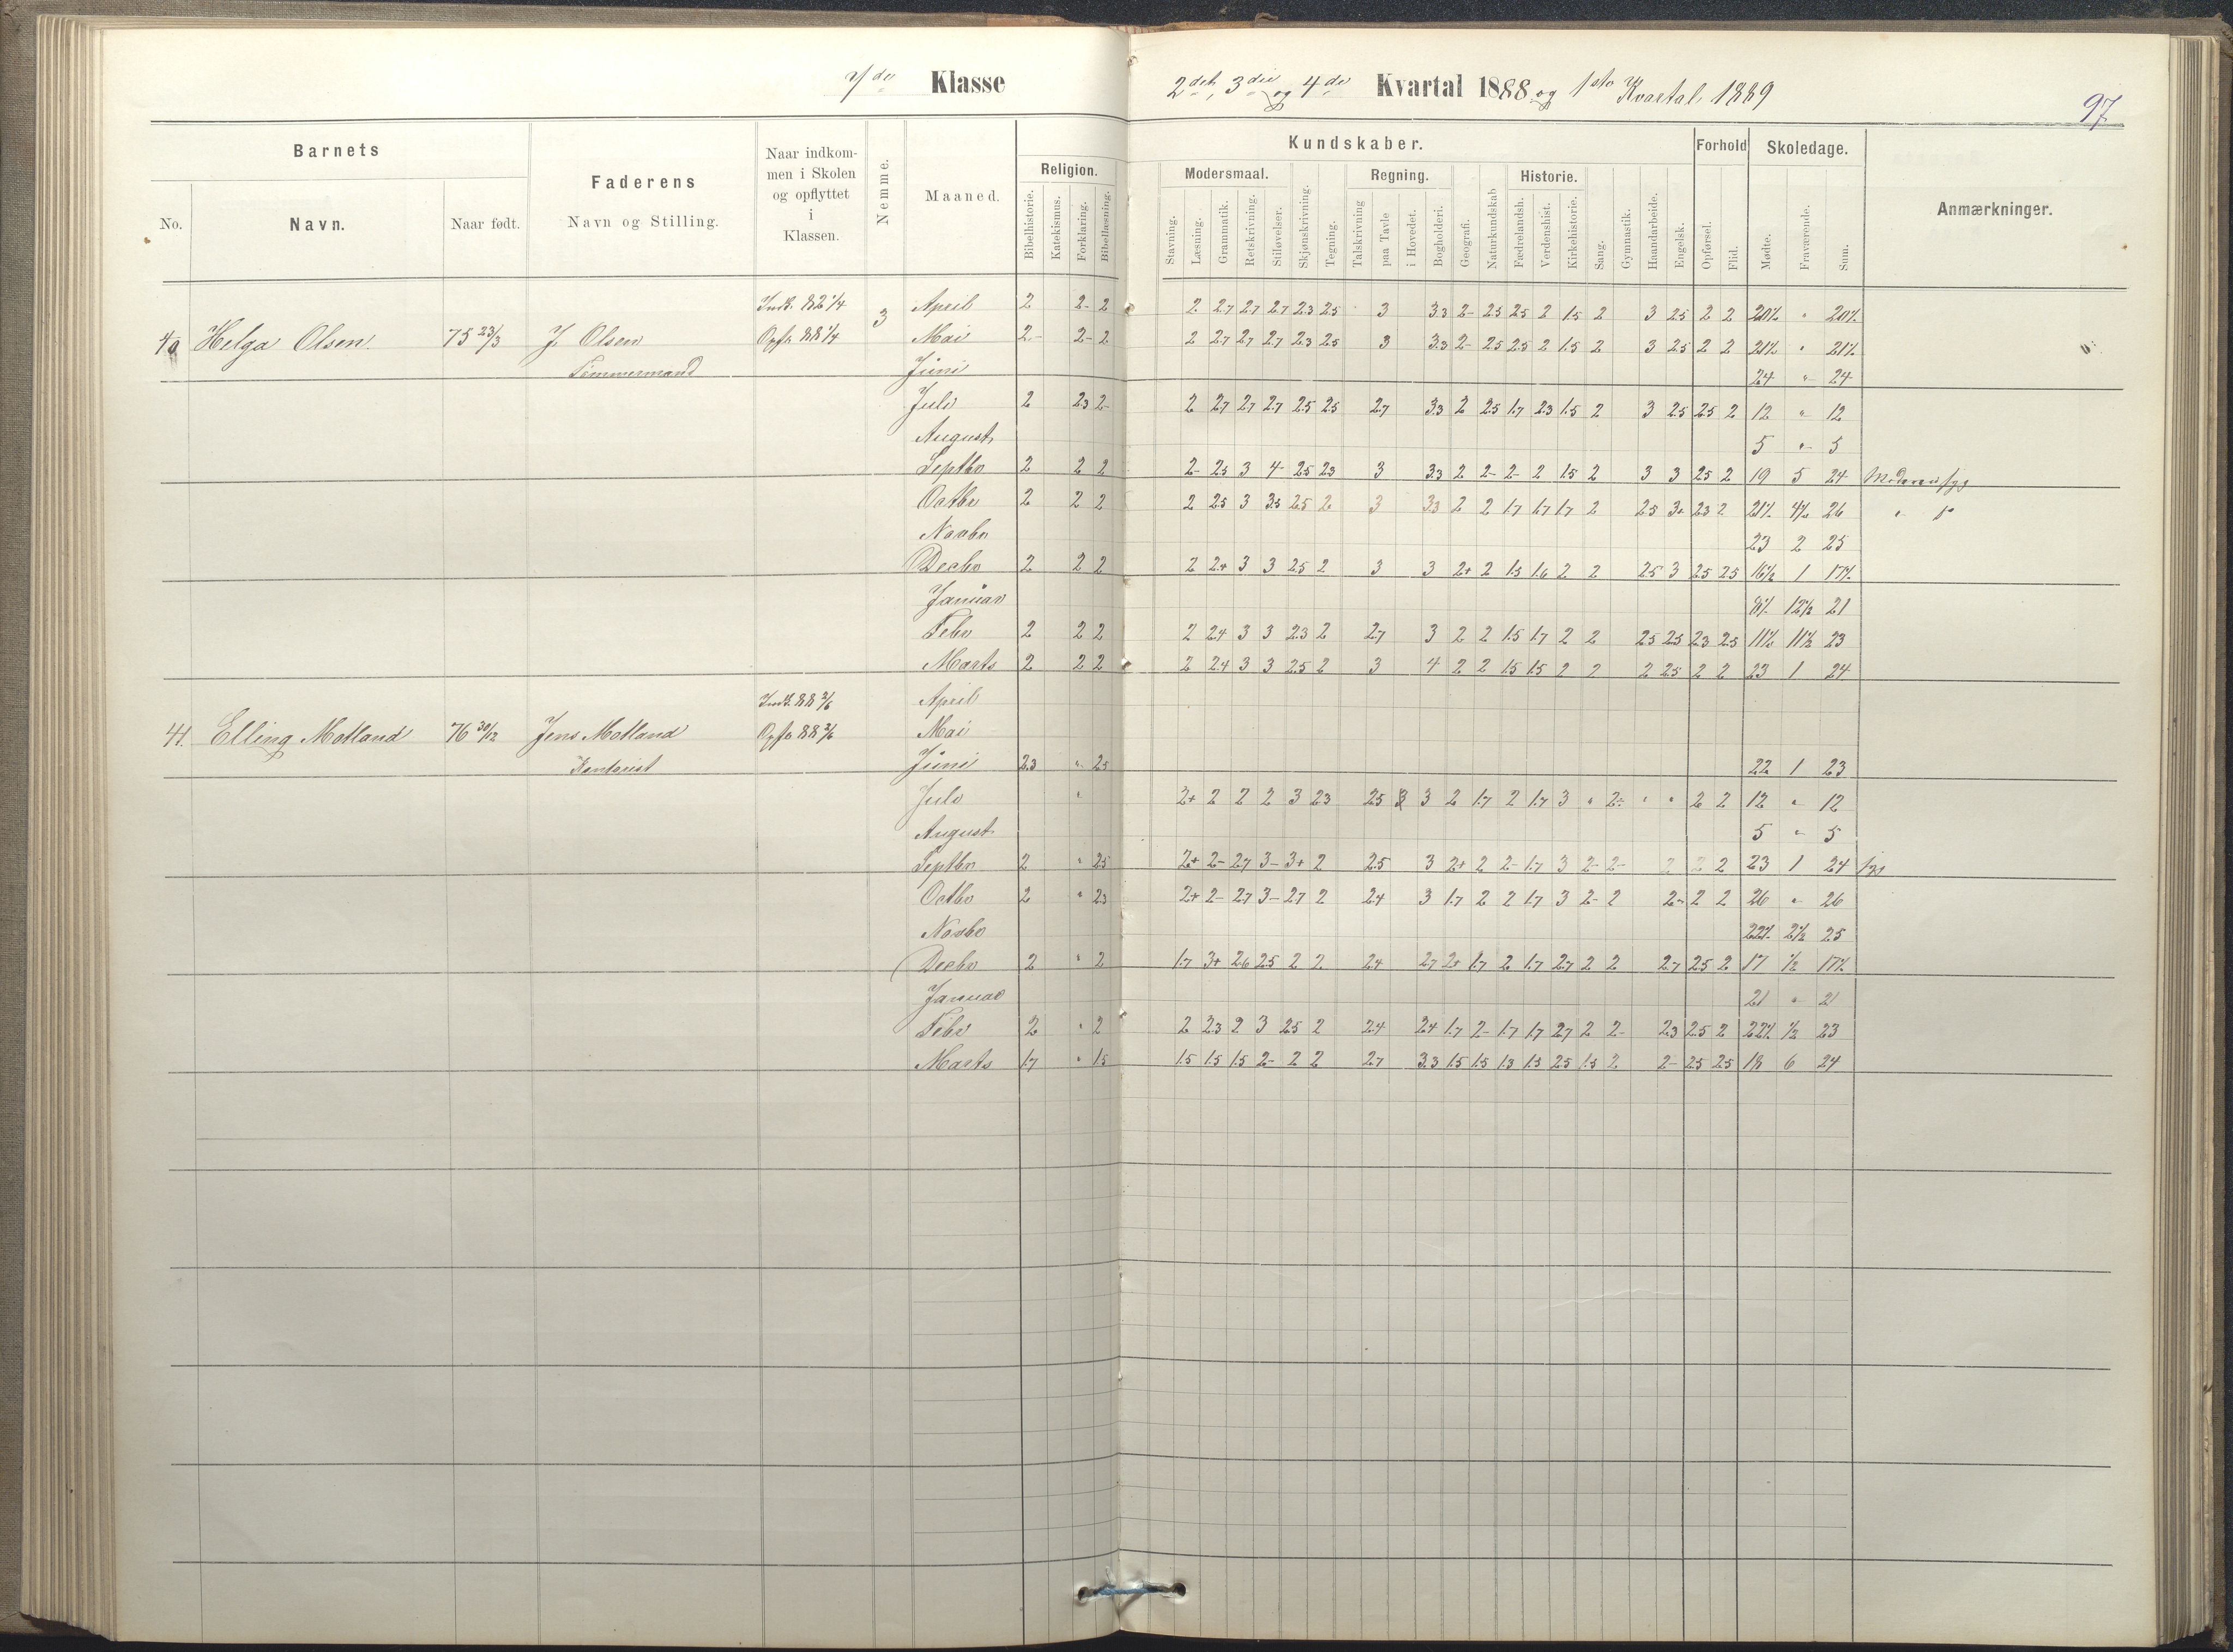 7de Klasse
2det, 3die og 4de Kvartal 1888 og 1ste Kvartal 1889
97
Barnets
Faderens
Navn og Stilling.
Naar indkommen i Skolen og opflyttet i Klassen.
Nemme.
Maaned.
Kundskaber.
Forhold
Skoledage.
Anmærkninger.
No.
Navn.
Naar født.
Religion.
Modersmaal.
Regning.
Historie.
Bibelhistorie. Katekismus. Forklaring. Bibellæsning. Stavning. Læsning. Grammatik. Retskrivning. Stiløvelser. Skjønskrivning. Tegning. Talskrivning paa Tavle i Hovedet. Bogholderi. Geografi. Naturkundskab Fædrelandsh. Verdenshist. Kirkehistorie. Sang. Gymnastik. Haandarbeide. Engelsk. Opførsel. Flid. Mødte. Fraværende. Sum.
Indk. 82 1/4 3 April 2 2- 2 2 2.7 2.7 2.7 2.3 2.5 3 3.3 2- 2.5 2.5 2 1.5 2 3 2.5 2 2 20½ " 20½
40 Helga Olsen 75 23/3 J. Olsen Opfl. 88 1/4 Mai 2- 2- 2 2 2.7 2.7 2.7 2.3 2.5 3 3.3 2- 2.5 2.5 2 1.5 2 3 2.5 2 2 21½ " 21½
Tømmermand Juni 24 " 24
Juli 2 2.3 2- 2 2.7 2.7 2.7 2.5 2.5 2.7 3.3 2 2.5 1.7 2.3 1.5 2 3 2.5 2.5 2 12 " 12
August 5 " 5
Septbr 2 2 2 2- 2.5 3 4- 2.5 2.3 3 3.3 2 2- 2- 2 1.5 2 3 3 2.5 2 19 5 24 Moderen syg
Octbr 2 2 2 2 2.5 3 3.5 2.5 2 3 3.3 2 2 1.7 1.7 1.7 2 2.5 3+ 2.3 2 21½ 4½ 26
Novbr 23 2 25
Decbr 2 2 2 2 2.4 3 3 2.5 2 3 3 2+ 2 1.5 1.6 2 2 2.5 3 2.5 2.5 16½ 1 17½
Januar 8½ 12½ 21
Febr 2 2 2 2 2.4 3 3 2.3 2 2.7 3 2 2 1.5 1.7 2 2 2.5 2.5 2.3 2.5 11½ 11½ 23
Marts 2 2 2 2 2.4 3 3 2.5 2 3 4 2 2 1.5 1.5 2 2 2 2.5 2 2 23 1 24
Indk. 88 2/6 April
41. Elling Motland 76 30/12 Jens Motland Opfl. 88 2/6 Mai
Kontorist Juni 2.3 " 2.5 22 1 23
Juli " 2+ 2 2 2 3 2.3 2.5 3 2 1.7 2 1.7 3 " 2- " " 2 2 12 " 12
August 5 " 5
Septbr 2 " 2.5 2+ 2- 2.7 3- 3+ 2 2.5 3 2+ 2 2- 1.7 3 2- 2- 2 2 2 23 1 24 syg
Octbr 2 " 2.3 2+ 2- 2.7 3- 2.7 2 2.4 3 1.7 2 2 1.7 3 2- 2 2- 2 2 26 " 26
Novbr 22½ 2½ 25
Decbr 2 " 2 1.7 3+ 2.6 2.5 2 2 2.4 2.7 2+ 1.7 2 1.7 2.7 2 2 2.7 2.5 2 17 ½ 17½
Januar 21 " 21
Febr 2 " 2 2 2.3 2 3 2.5 2 2.4 2.4 1.7 2- 1.7 1.7 2.7 2 2- 2.3 2.5 2 22½ ½ 23
Marts 1.7 " 1.5 1.5 1.5 1.5 2- 2 2 2.7 3.3 1.5 1.5 1.3 1.5 2.5 1.5 2 2- 2.5 2.5 18 6 24